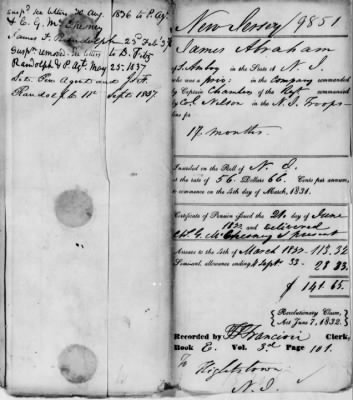 Susp'd see letters 30 Aug. 1836 to P. Agt.
& C. G. McChesney
James F. Randolph 25 Feb 37
Susp'n removed see letters
to B. Fitz
Randolph & P. Agt. May 25. 1837
Let. Pen. Agent and J. F.
Randolph 11 Sept 1837.
New Jersey 9851
James Abraham
of S. Amboy in the State of N. J.
who was a priv: in the Company commanded
by Captain Chambers of the Regt commanded
by Col. Nelson in the N. J. Troops
line for
17 months.
Inscribed on the Roll of N. J.
at the rate of 56 Dollars 66 Cents per annum,
to commence on the 4th day of March, 1831.
Certificate of Pension issued the 21. day of June
1833 and delivered
C. G. McChesney Present
Arrears to the 4th of March 1833. 113.32
Semi-anl. allowance ending 4 Sept 33. 28.33
$ 141.65
Revolutionary Claim,
Act June 7, 1832.
Recorded by Clerk,
Book E. Vol. 3d Page 101.
To
Hightstown
N. J.